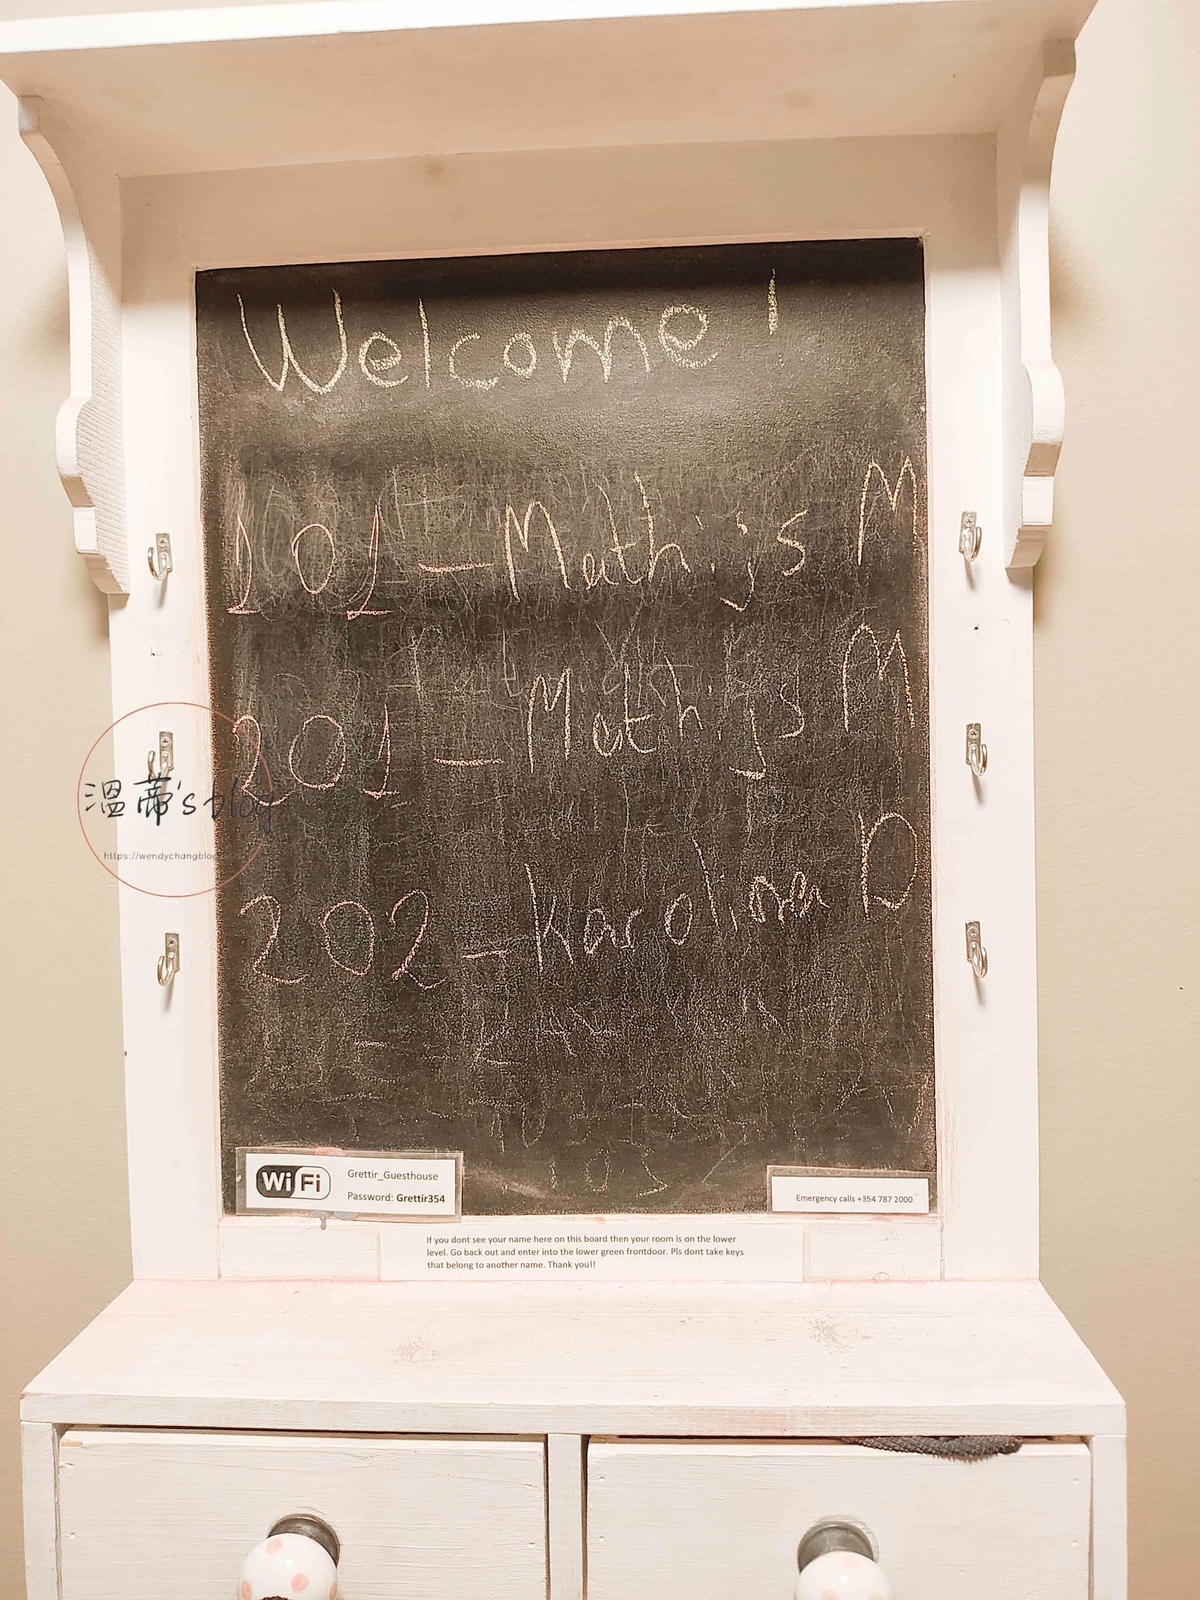 Welcome!
101 - Mathijs M
201 - Mathijs M
202 - Karolina D
溫蒂's blog
https://wendychangblog
103
WiFi
Grettir_Guesthouse
Password: Grettir354
Emergency calls +354 787 2000
If you dont see your name here on this board then your room is on the lower
level. Go back out and enter into the lower green frontdoor. Pls dont take keys
that belong to another name. Thank you!!